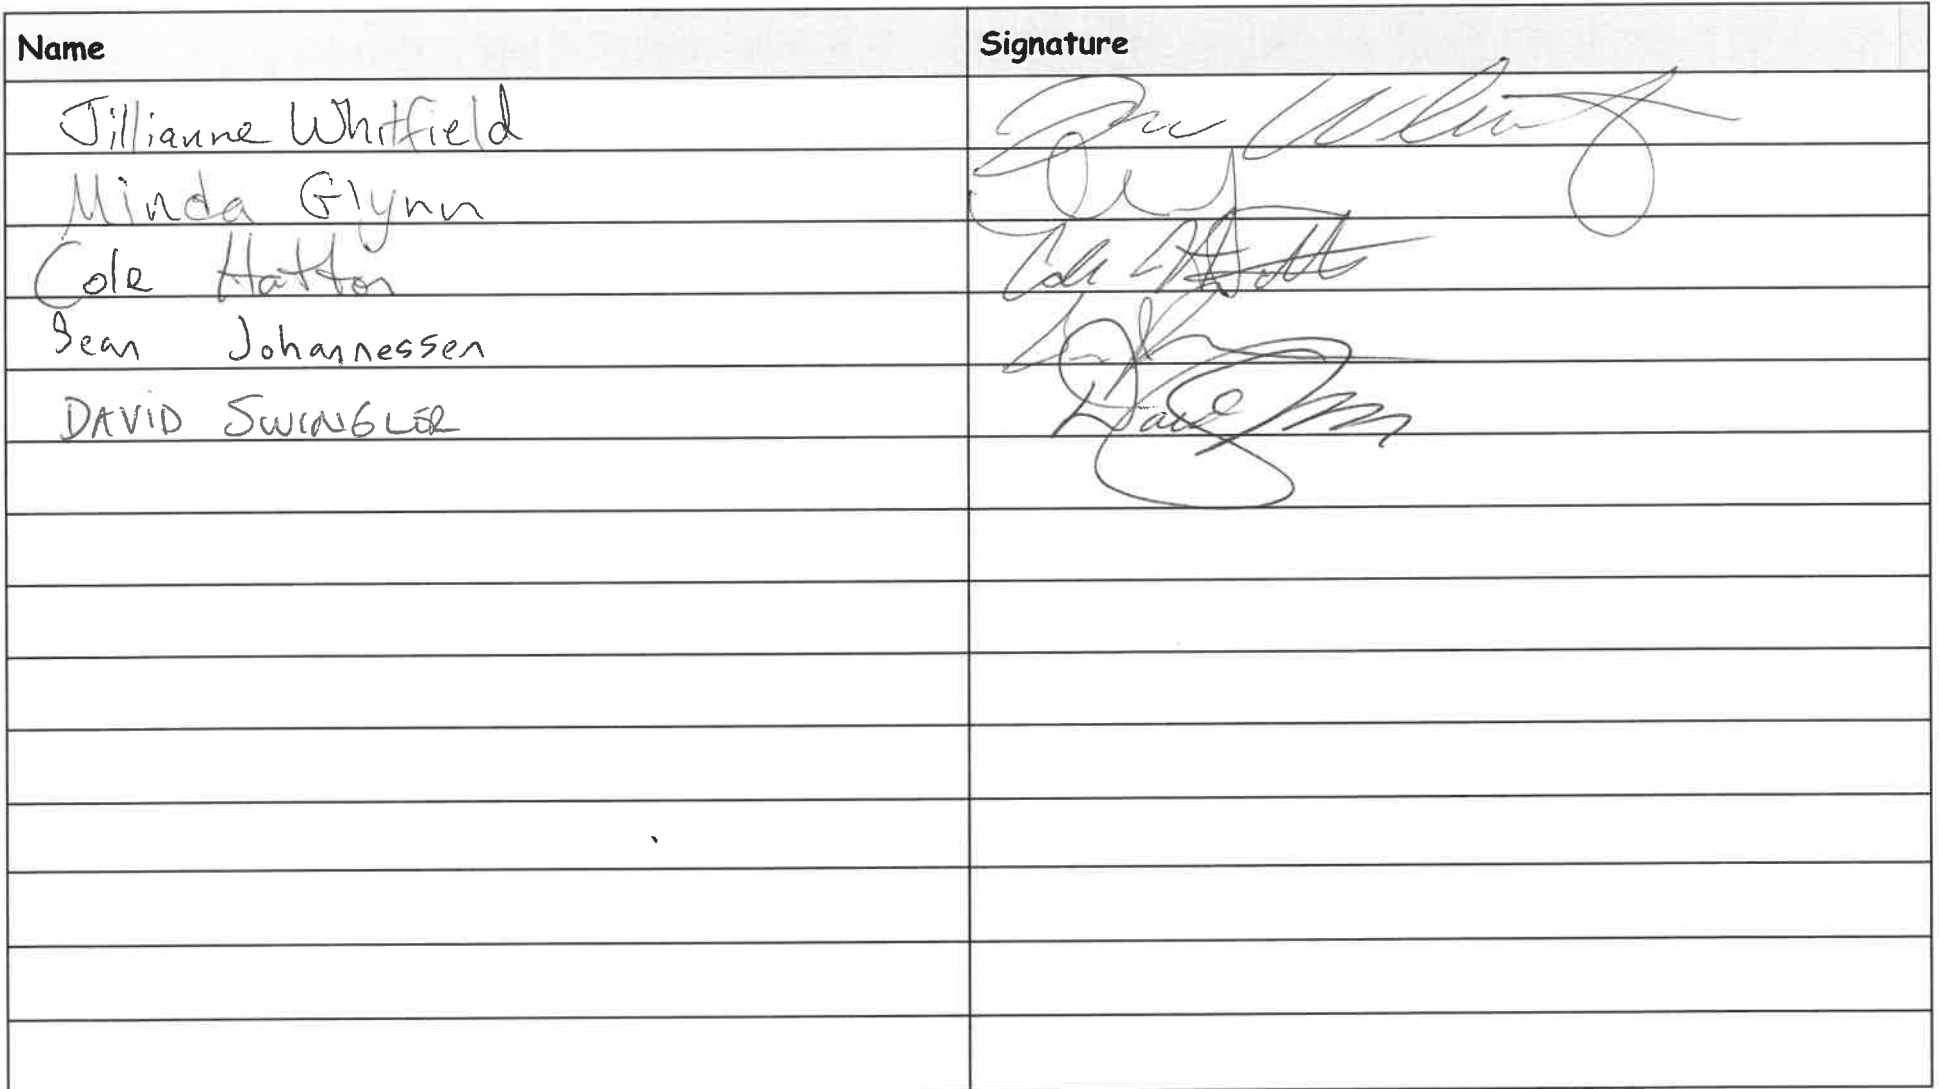 Name Signature
Jillianne Whitfield
Minda Glynn
Cole Hatton Cole Hatton
Sean Johannessen
DAVID SWINGLER David